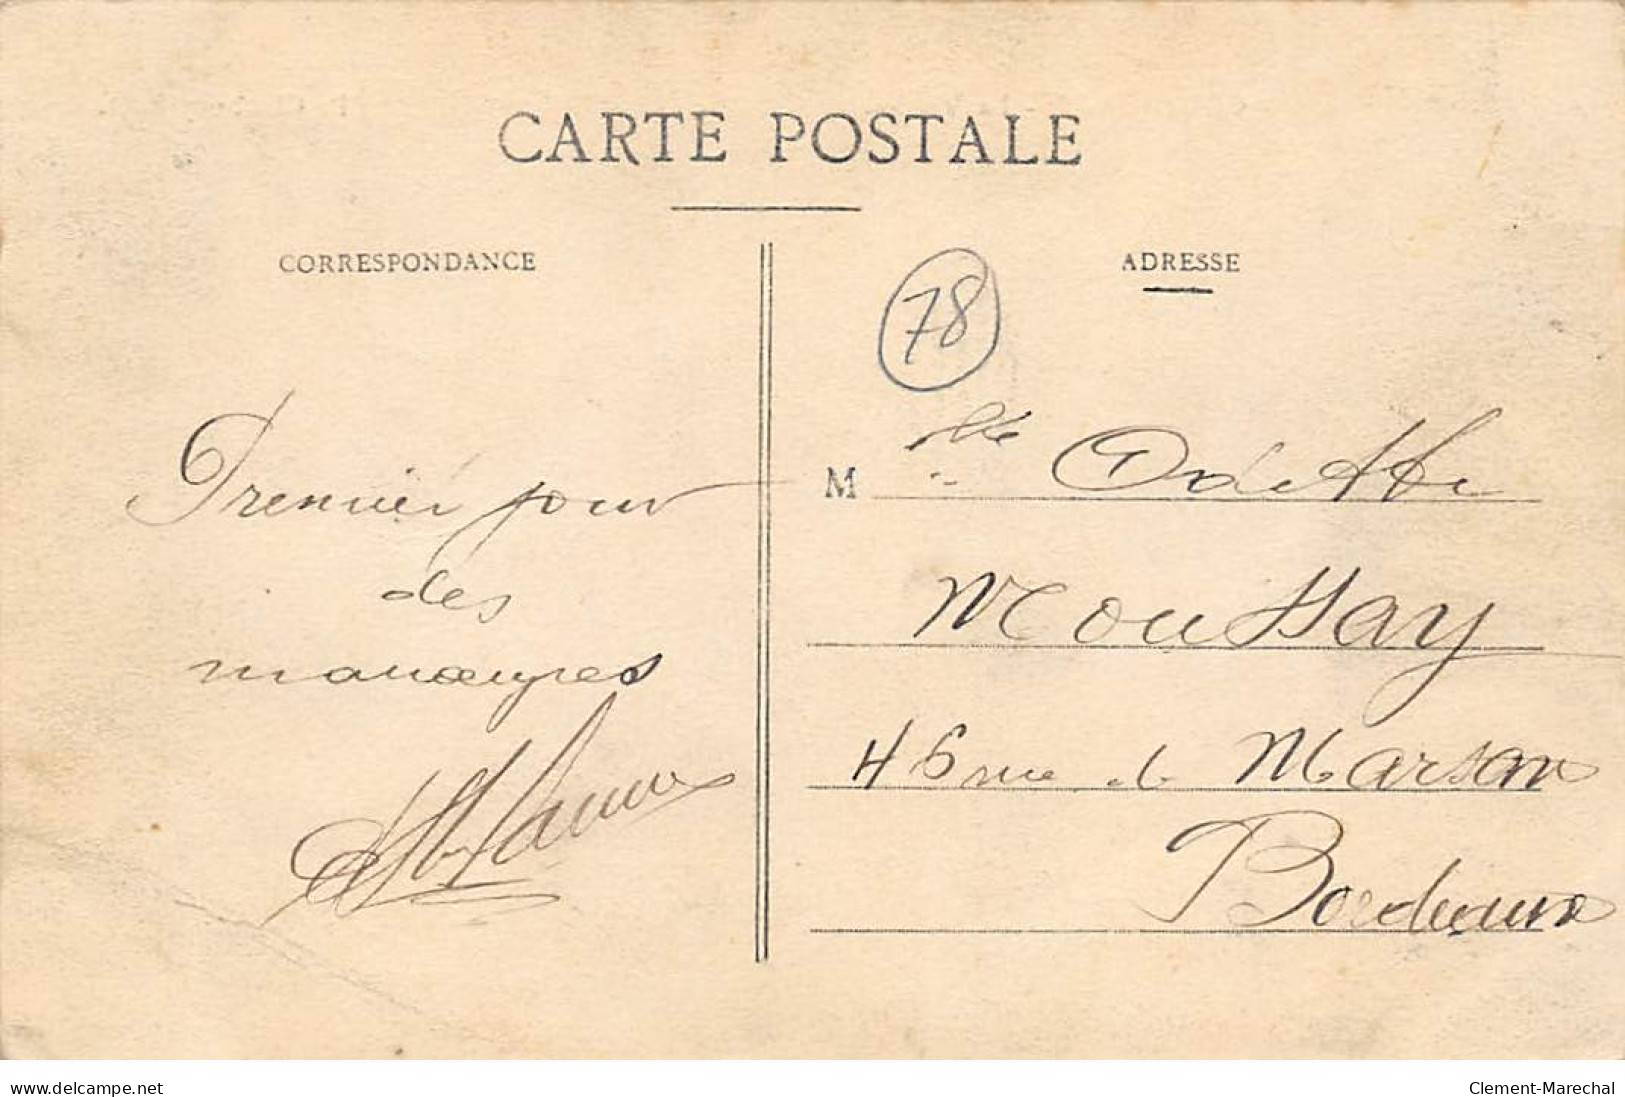 CARTE POSTALE
CORRESPONDANCE
Premier jour
des
manœuvres
ADRESSE
78
M lle Odette
Moussay
46 rue de Marsan
Bordeaux
www.delcampe.net
Clement-Marechal